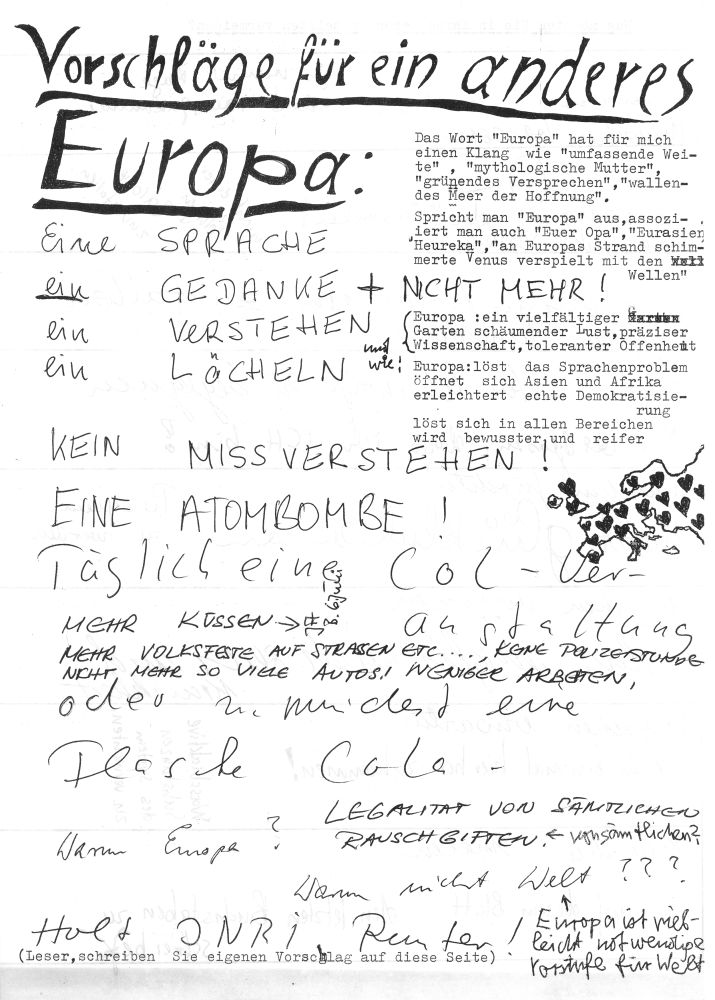 Vorschläge für ein anderes
Europa:
Das Wort "Europa" hat für mich
einen Klang wie "umfassende Wei-
te" , "mythologische Mutter",
"grünendes Versprechen","wallen-
des Meer der Hoffnung".
Spricht man "Europa" aus,assozi-
iert man auch "Euer Opa","Eurasien
Heureka","an Europas Strand schim-
merte Venus verspielt mit den
Wellen"
Eine SPRACHE
ein GEDANKE + NICHT MEHR!
ein VERSTEHEN
ein LÄCHELN
und wie!
Europa :ein vielfältiger
Garten schäumender Lust,präziser
Wissenschaft,toleranter Offenheit
Europa:löst das Sprachenproblem
öffnet sich Asien und Afrika
erleichtert echte Demokratisie-
rung
löst sich in allen Bereichen
wird bewusster und reifer
KEIN MISSVERSTEHEN!
EINE ATOMBOMBE!
Täglich eine Col-Ver-
MEHR KÜSSEN → 6. Juli
anstaltung
MEHR VOLKSFESTE AUF STRASEN ETC...., KEINE POLIZEISTUNDE
NICHT MEHR SO VIELE AUTOS! WENIGER ARBEITEN,
oder zumindest eine
Flasche Cola-
LEGALITÄT VON SÄMTLICHEN
RAUSCHGIFTEN. ← von sämtlichen?
Warum Europa?
Warum nicht Welt???
Holt INRI Runter!
Europa ist viel-
leicht notwenige
Vorstufe für Welt
(Leser,schreiben Sie eigenen Vorschlag auf diese Seite)